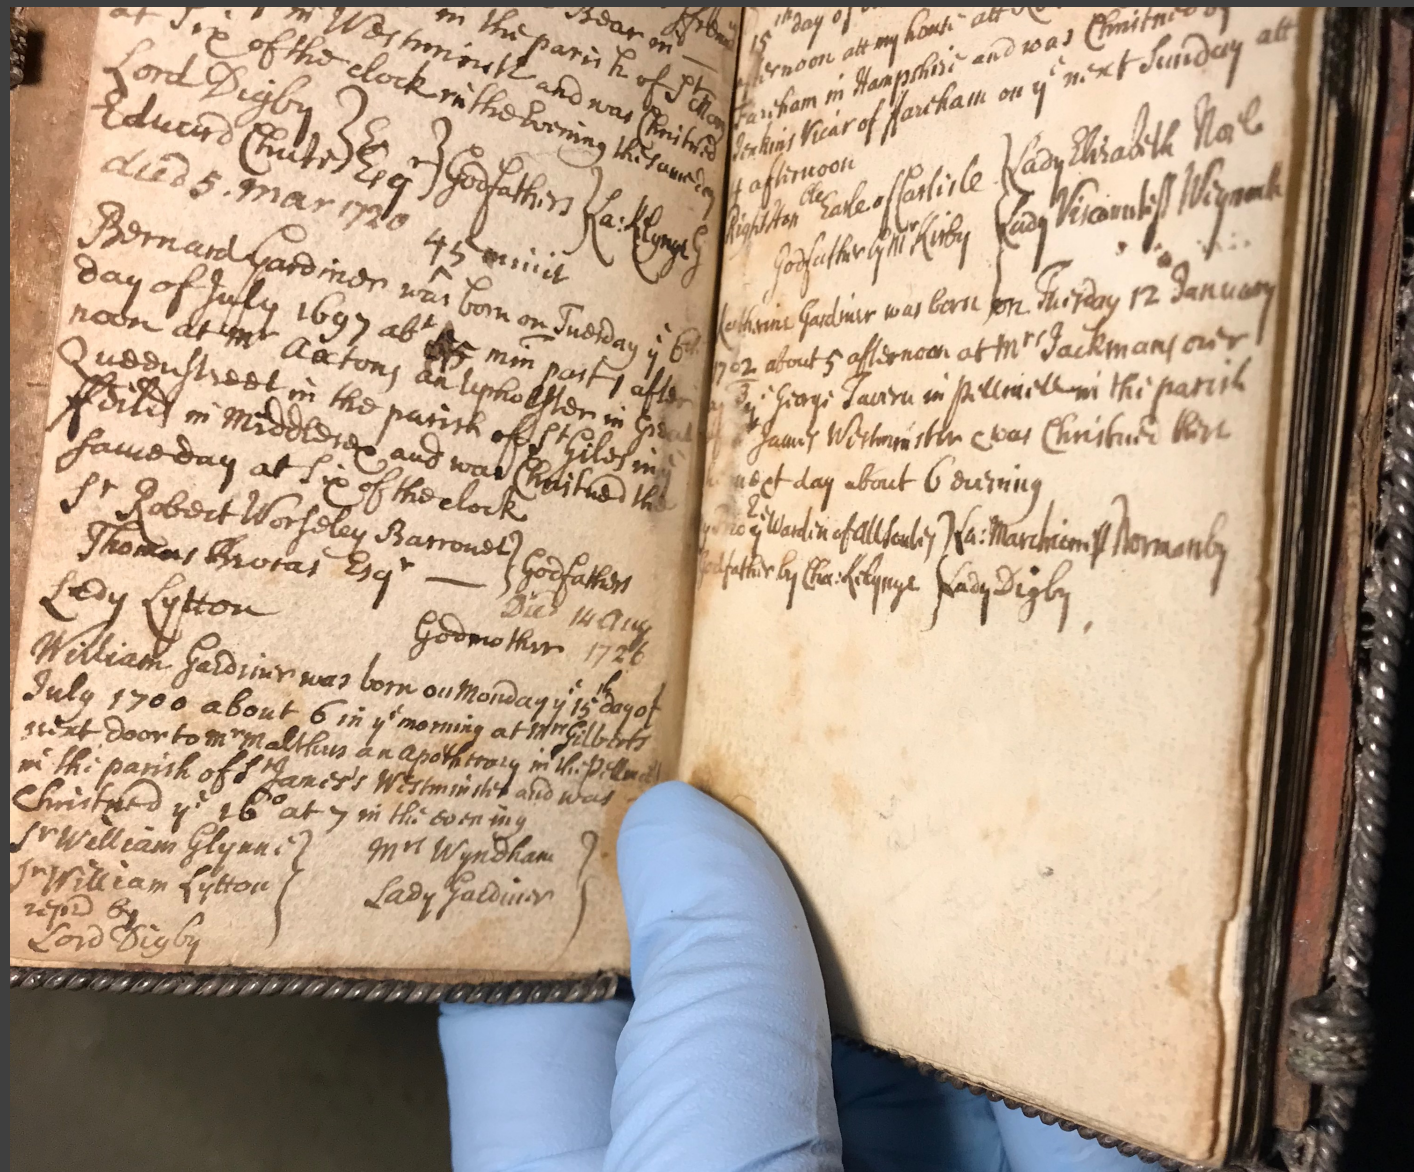 Bear in
at Six in Westminstr in the parish of St
of the clock in the Evening the same day
and was Christned
Lord Digby
Edward Chute Esqr Godfathers La: Klynge
died 5. Mar 1720
45 minit
Bernard Gardiner was born on Tuesday ye 6th
day of July 1697 abt min past 1 after
noon at Mr Axtons an Upholster in Great
Queenstreet in the parish of St Giles in ye
ffeilds in Middlesex and was Christned the
same day at Six of the clock
Sr Robert Worseley Barronet
Thomas Brocas Esqr — Godfathers
Died 14 Aug
Lady Lytton Godmother 1726
William Gardiner was born on Monday ye 15th day of
July 1700 about 6 in ye morning at Mrs Gilberts
next door to Mr Malthus an Apothecary in the Pellmell
in the parish of St James's Westminster and was
Christned ye 16º at 7 in the evening
Sr William Glynne Mrs Wyndham
Sr William Lytton Lady Gardiner
repd by
Lord Digby
15th day of
afternoon att my house att
Fareham in Hampshire and was Christned by
Jenkins Vicar of Fareham on ye next Sunday att
4 afternoon
Right Honble Earle of Carlisle Lady Elizabeth Noel
Godfather by Mr Kirby Lady Viscountess Weymouth
Katherine Gardiner was born on Tuesday 12 January
1702 about 5 afternoon at Mrs Jackmans over
ye George Tavern in Pellmell in the parish
of St James Westminster & was Christned there
next day about 6 evening
ye Warden of All Soules La: Marchioness Normanby
Godfather by Cha: Klynge Lady Digby